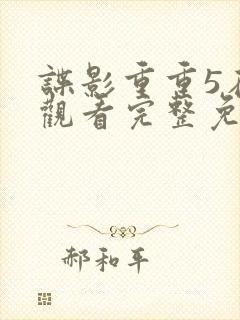 諜影重重5在
觀看完整免
郝和平